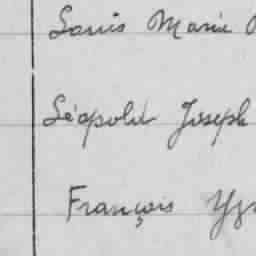 Louis Marie
Léopold Joseph
François